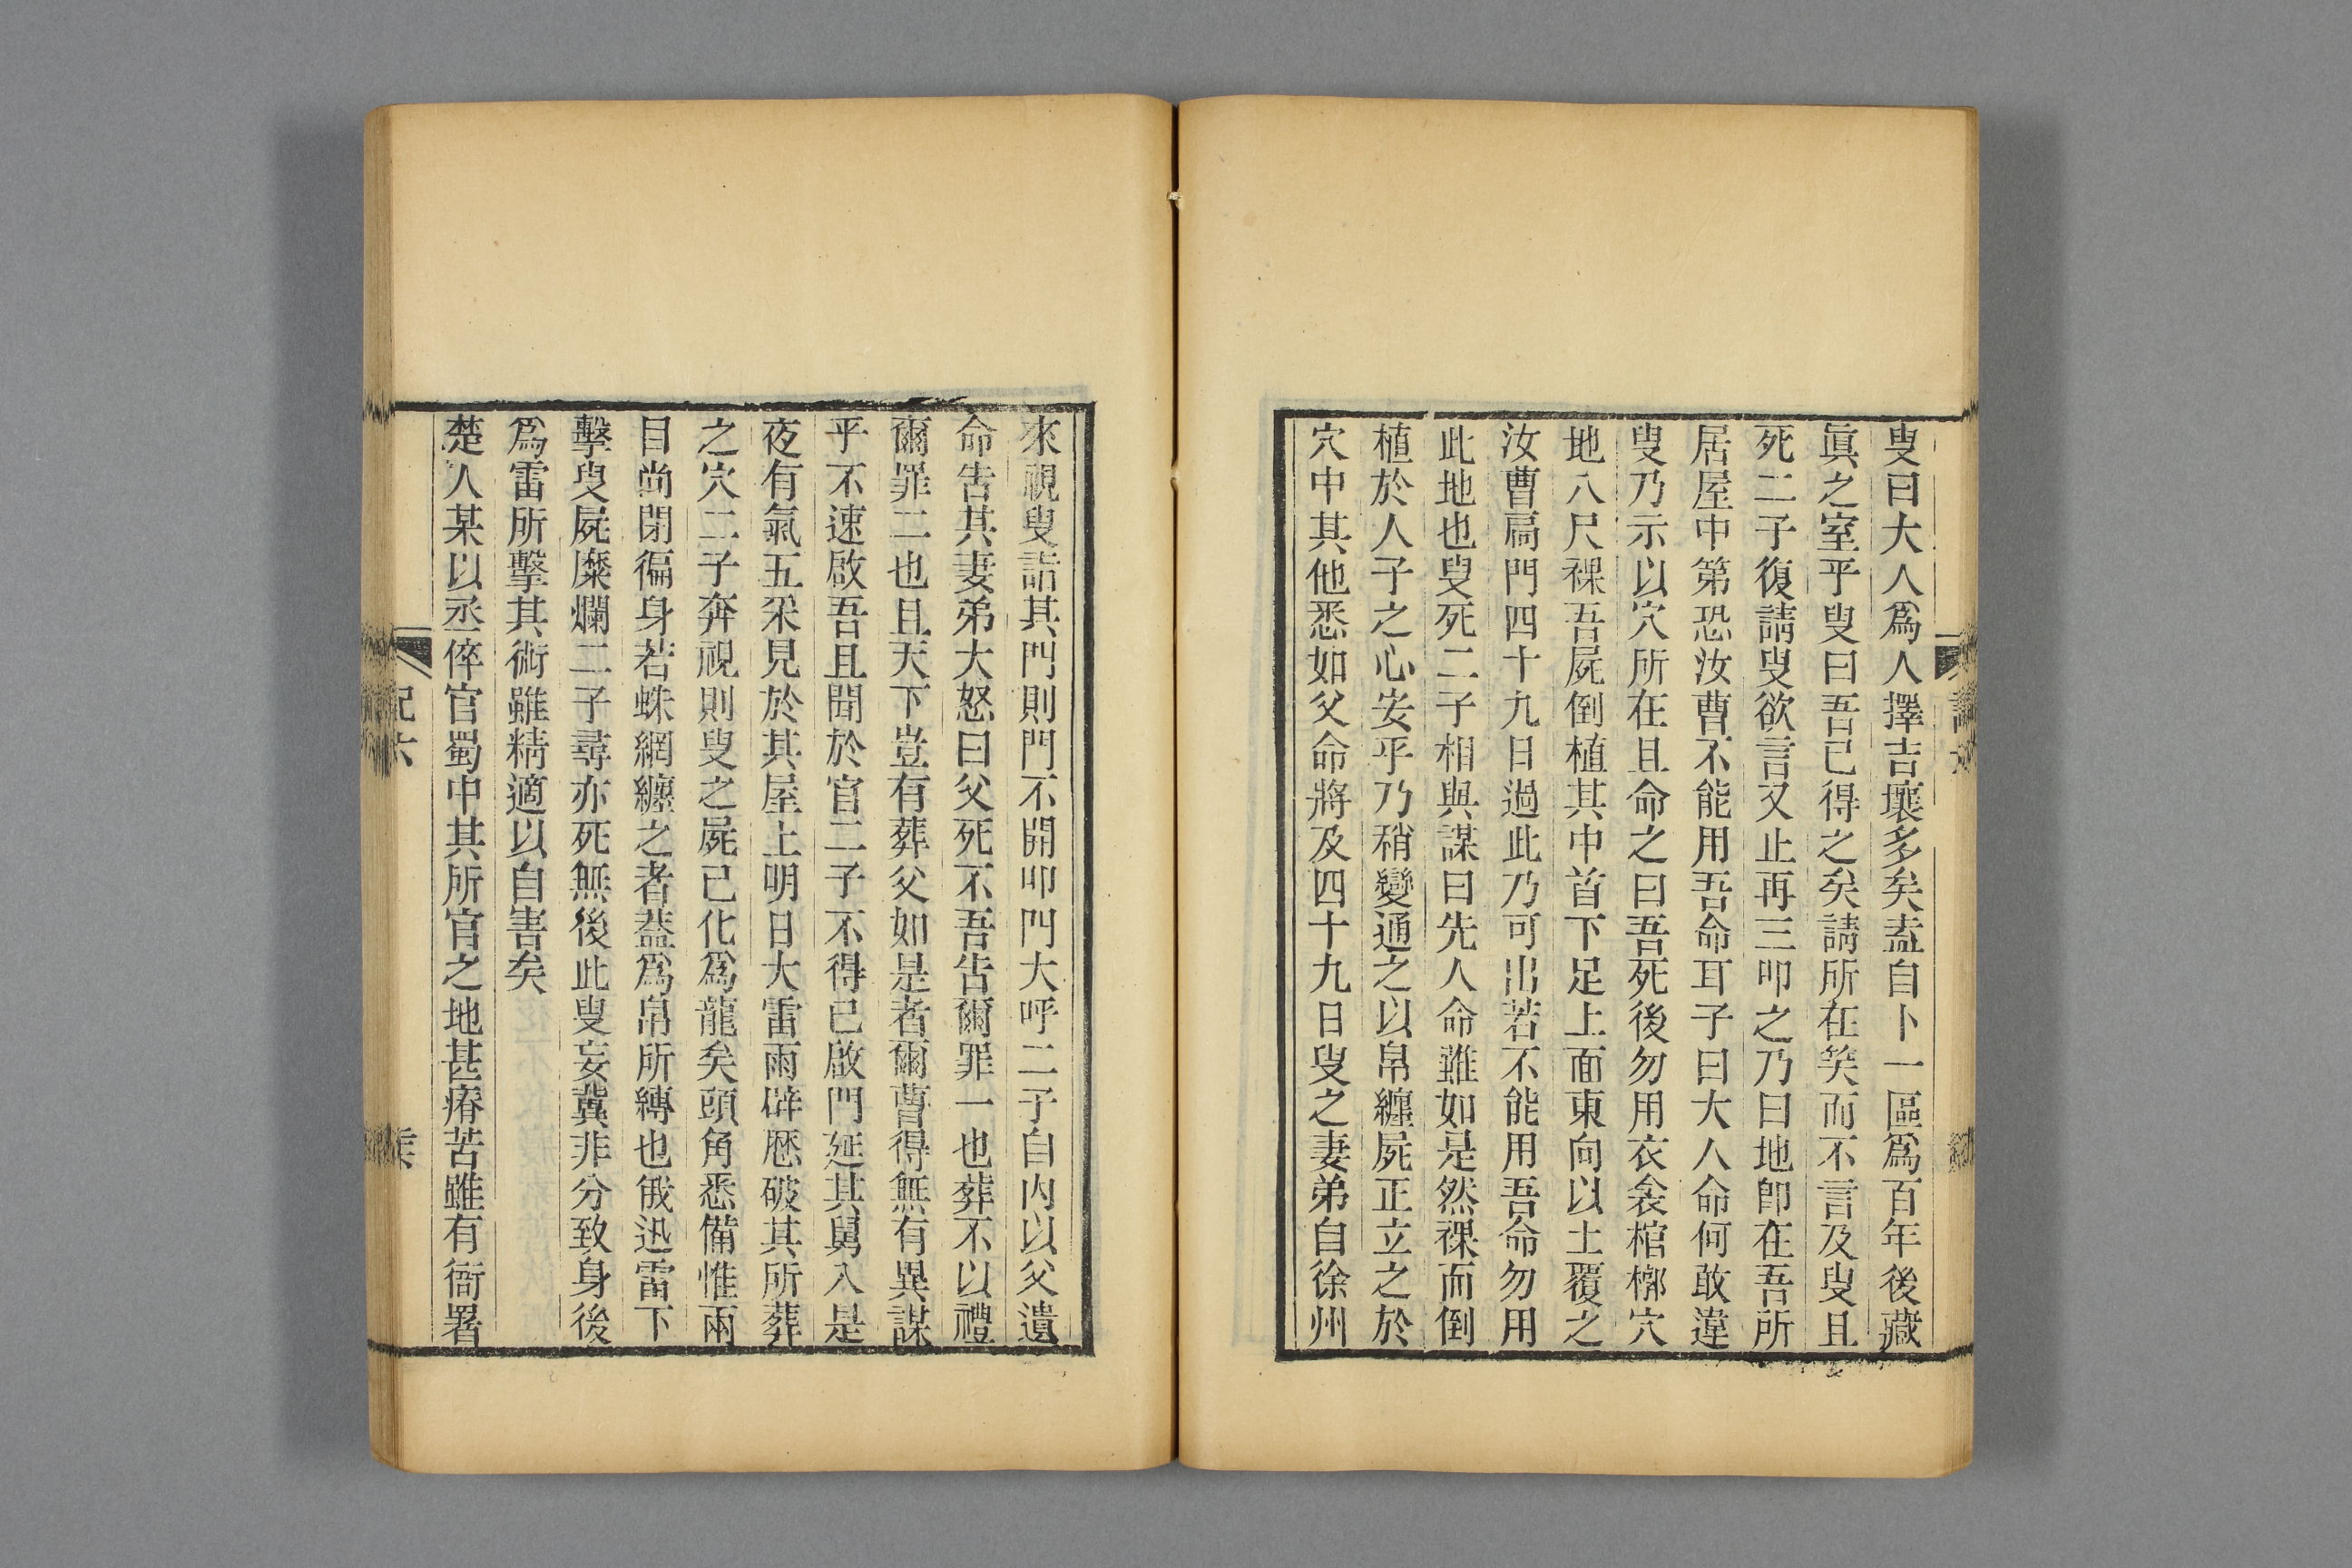 叟曰大人爲人擇吉壤多矣盍自卜一區爲百年後藏
眞之室乎叟曰吾已得之矣請所在笑而不言及叟且
死二子復請叟欲言又止再三叩之乃曰地卽在吾所
居屋中第恐汝曹不能用吾命耳子曰大人命何敢違
叟乃示以穴所在且命之曰吾死後勿用衣衾棺槨穴
地八尺裸吾屍倒植其中首下足上面東向以土覆之
汝曹扃門四十九日過此乃可出若不能用吾命勿用
此地也叟死二子相與謀曰先人命雖如是然裸而倒
植於人子之心安乎乃稍變通之以帛纏屍正立之於
穴中其他悉如父命將及四十九日叟之妻弟自徐州
來視叟詣其門則門不開叩門大呼二子自內以父遺
命告其妻弟大怒曰父死不吾告爾罪一也葬不以禮
爾罪二也且天下豈有葬父如是者爾曹得無有異謀
乎不速啟吾且聞於官二子不得已啟門延其舅入是
夜有氣五采見於其屋上明日大雷雨辟歷破其所葬
之穴二子奔視則叟之屍已化爲龍矣頭角悉備惟兩
目尚閉徧身若蛛網纏之者葢爲帛所縛也俄迅雷下
擊叟屍糜爛二子尋亦死無後此叟妄冀非分致身後
爲雷所擊其術雖精適以自害矣
楚人某以丞倅官蜀中其所官之地甚瘠苦雖有衙署
記六